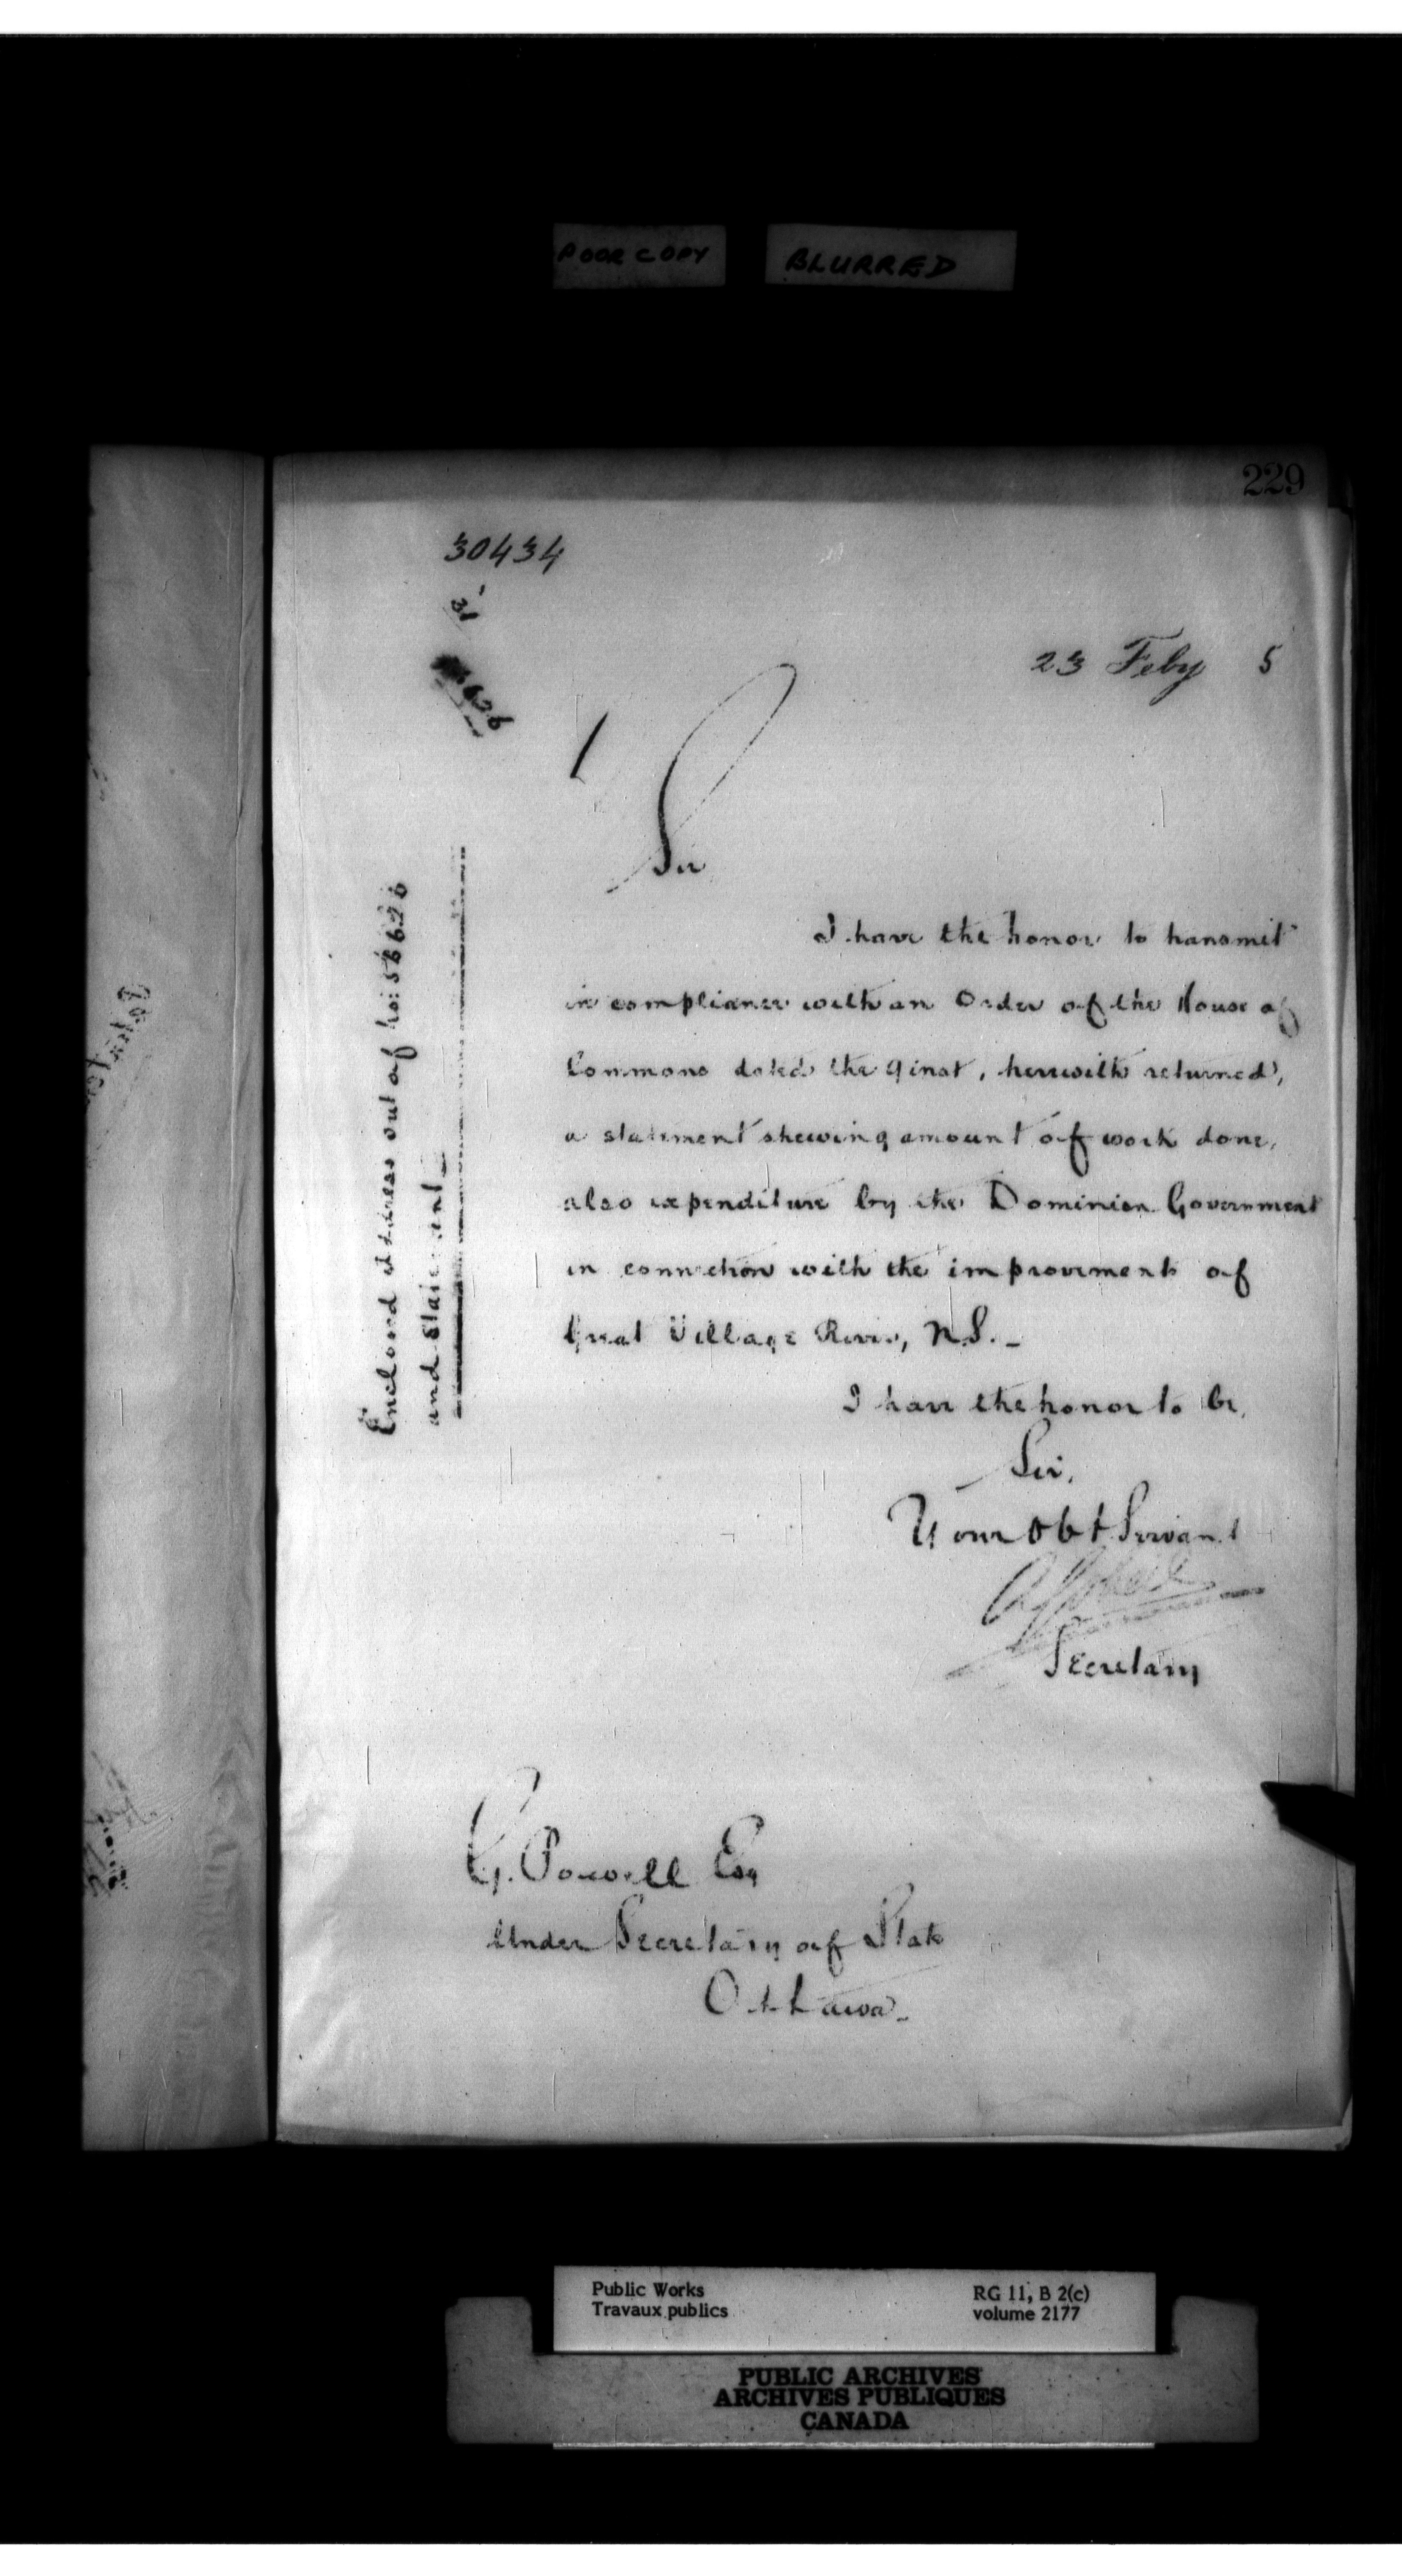 POOR COPY BLURRED
229
30434
31
23 Feby 5
Sir
I have the honor to transmit
in compliance with an Order of the House of
Commons dated the 9 inst, herewith returned,
a statement shewing amount of work done,
also expenditure by the Dominion Government
in connection with the improvements of
Great Village River, N.S.
I have the honor to be,
Sir,
Your Obt Servant
Secretary
G. Powell Esq
Under Secretary of State
Ottawa
Enclosed address out of no: 58626
and Statement
Public Works
Travaux publics
RG 11, B 2(c)
volume 2177
PUBLIC ARCHIVES
ARCHIVES PUBLIQUES
CANADA